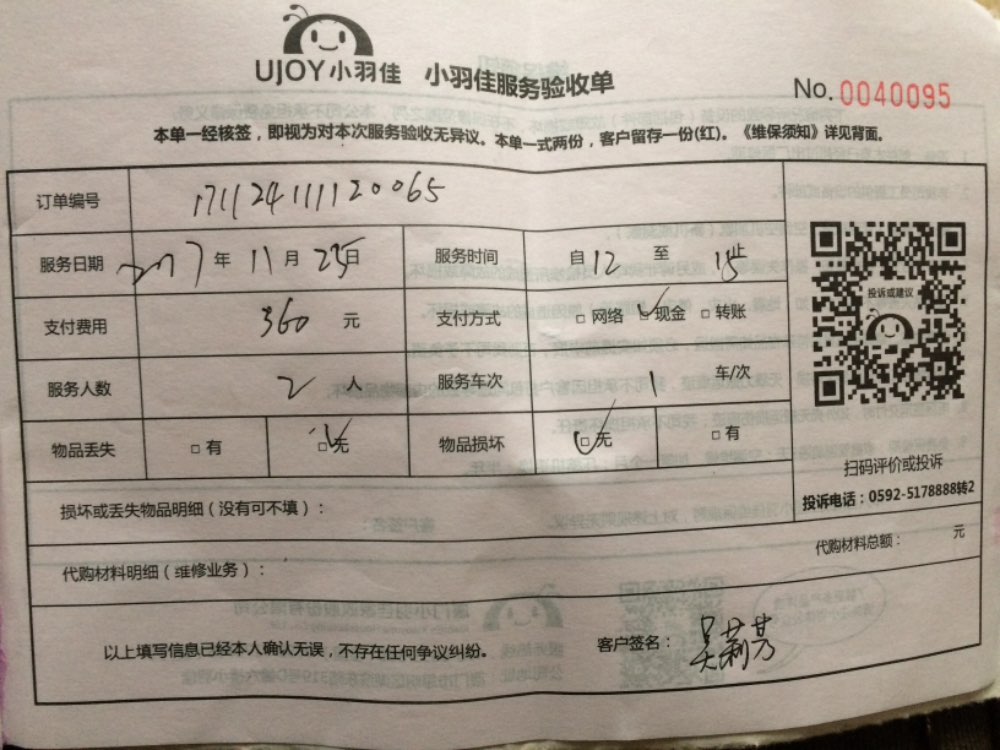 UJOY小羽佳 小羽佳服务验收单
No. 0040095
本单一经核签，即视为对本次服务验收无异议。本单一式两份，客户留存一份(红)。《维保须知》详见背面。
订单编号 171124111120065
服务日期 2017年11月25日 服务时间 自12至15止
支付费用 360元 支付方式 □网络 ☑现金 □转账
服务人数 2人 服务车次 1车/次
物品丢失 □有 ☑无 物品损坏 ☑无 □有
投诉或建议
扫码评价或投诉
投诉电话：0592-5178888转2
损坏或丢失物品明细（没有可不填）：
代购材料明细（维修业务）：
代购材料总额： 元
以上填写信息已经本人确认无误，不存在任何争议纠纷。
客户签名：吴莉芳